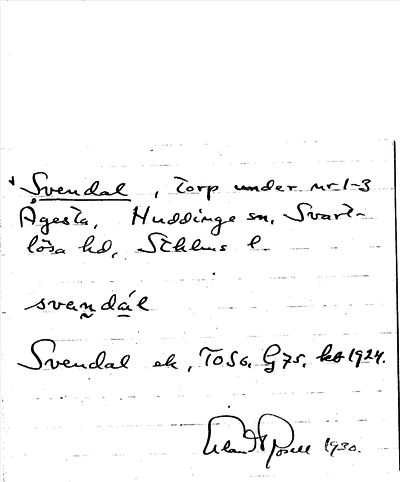 + Svendal, torp under nr 1-3
Ågesta, Huddinge sn, Svart-
lösa hd, Sthlms l.
svendál
Svendal ek, TOSG, G75, kb 1924.
1930.